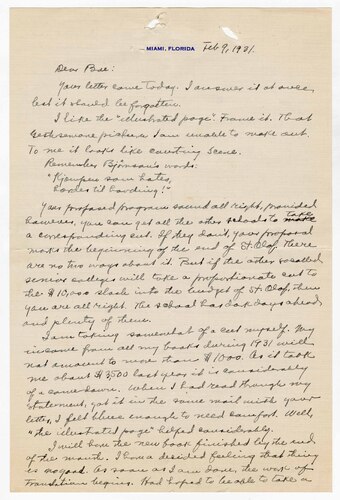 MIAMI, FLORIDA Feb 9, 1931.
Dear Boe:
Your letter came today. I answer it at once
lest it should be forgotten.
I like the "illustrated page". Frame it. That
I am unable to make out.
To me it looks like courting scene.
Remember Bjørnson's words:
"Kjempers som hates,
Your proposed program sounds all right, provided
however, you can get all the other schools to take
a corresponding cut. If they don't, your proposal
make the beginning of the end of St. Olaf. There
are no two ways about it. But if the other so called
senior colleges will take a proportionate cut to
the $10,000 slash into the budget of St. Olaf, then
you are all right. The school has dark days ahead,
and plenty of them.
I am taking somewhat of a cut myself. My
income from all my books during 1931 will
not amount to more than $1000. As it took
me about $3,500 last year it is considerably
of a come down. When I had read through my
statement, got it in the same mail with your
letter, I felt blue enough to need comfort. Well,
"the illustrated page" helped considerably.
I will have the new book finished by the end
of the month. I have a decided feeling that thing
is so good. As soon as I am done, the work of
translation begins. Had hoped to be able to take a